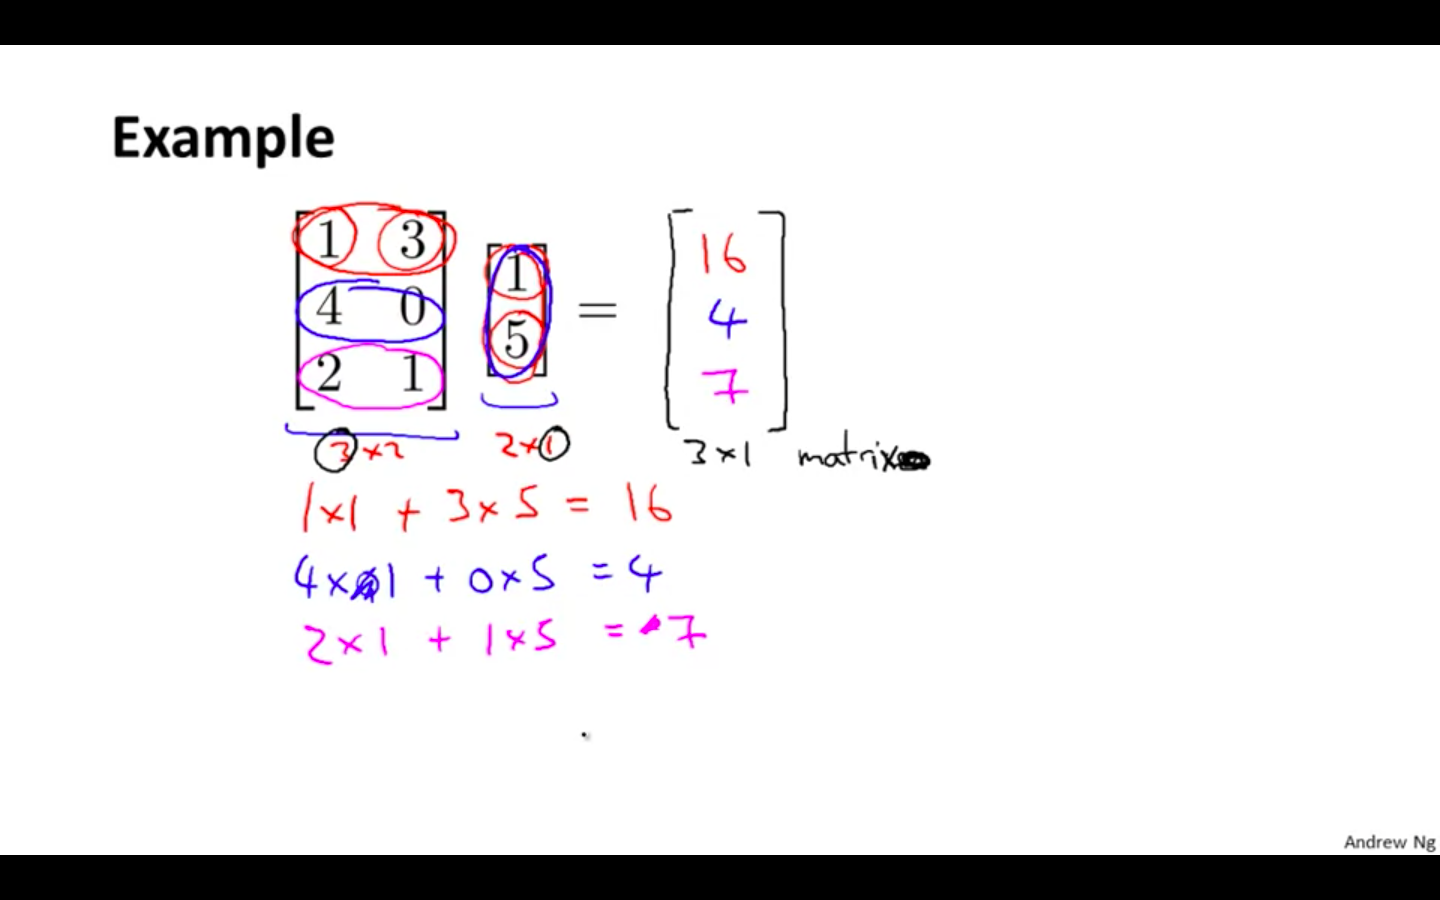 Example
[1 3
4 0
2 1] [1
5] = [16
4
7]
3×2 2×1 3×1 matrix
1×1 + 3×5 = 16
4×1 + 0×5 = 4
2×1 + 1×5 = 7
Andrew Ng